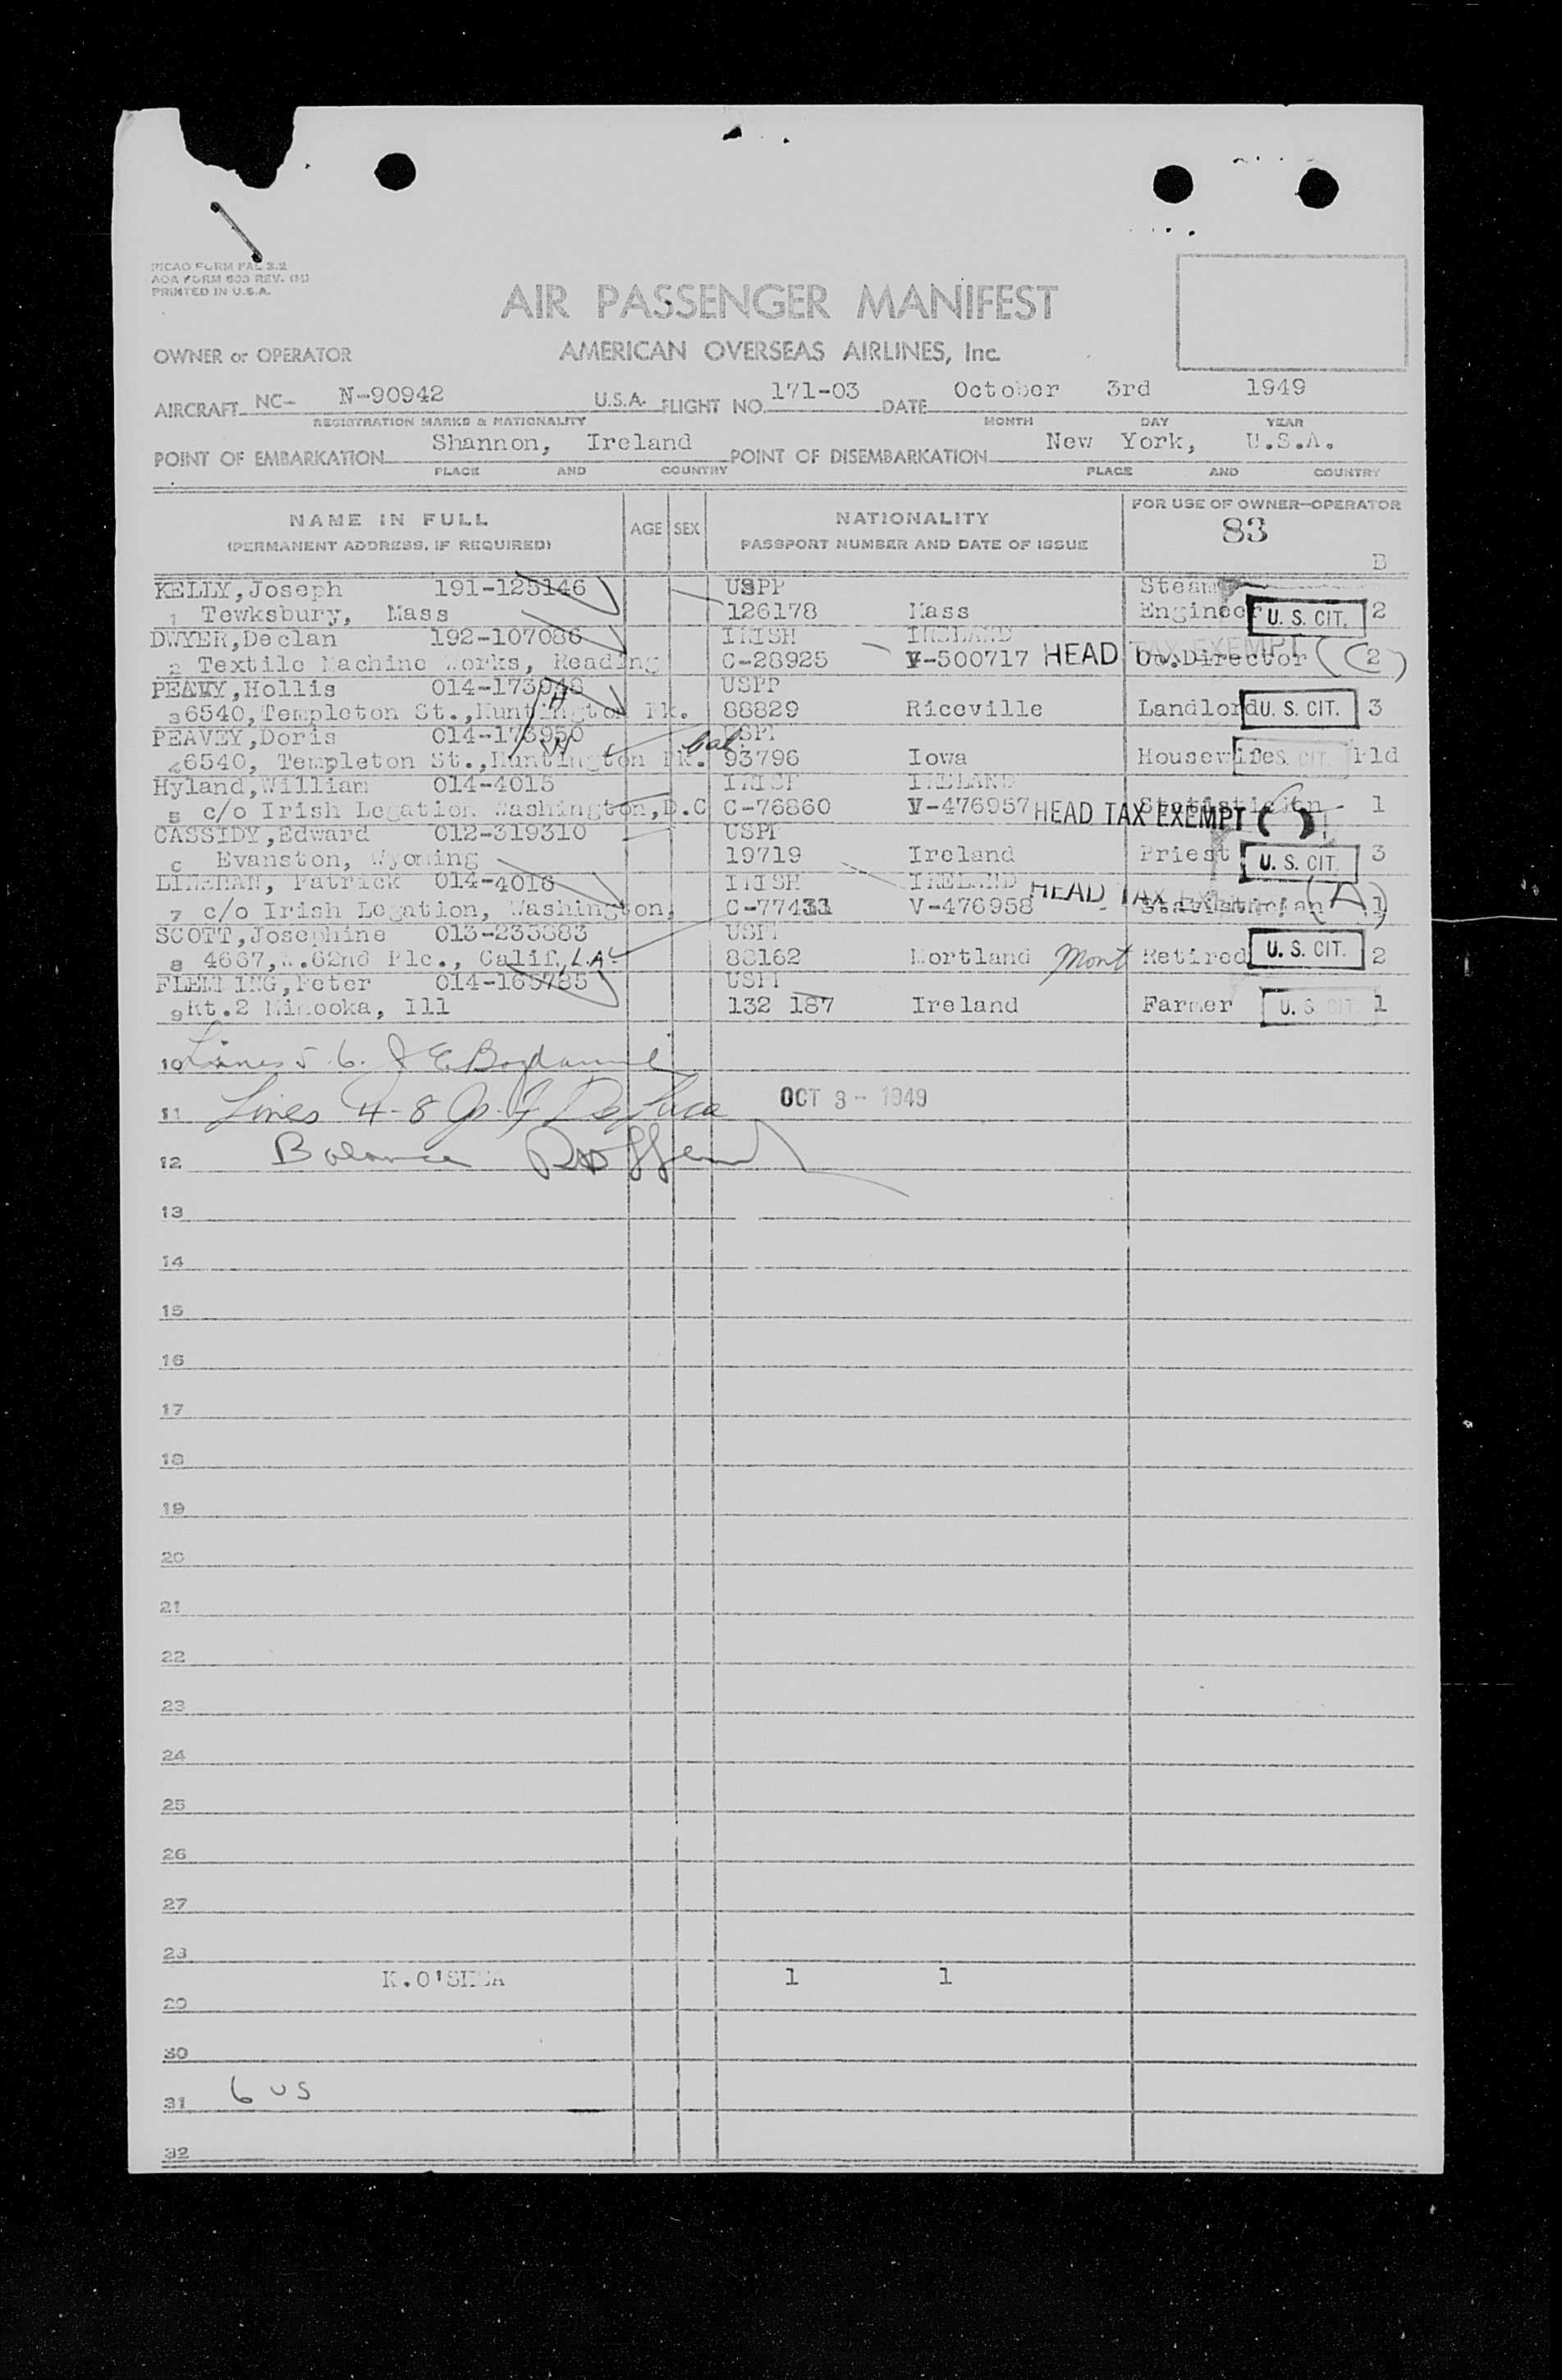 PICAO FORM FAL 3.2
AOA FORM 603 REV. (M)
PRINTED IN U.S.A.
AIR PASSENGER MANIFEST
OWNER or OPERATOR AMERICAN OVERSEAS AIRLINES, Inc.
AIRCRAFT NC- N-90942 U.S.A. FLIGHT NO. 171-03 DATE October 3rd 1949
REGISTRATION MARKS & NATIONALITY MONTH DAY YEAR
POINT OF EMBARKATION Shannon, Ireland POINT OF DISEMBARKATION New York, U.S.A.
PLACE AND COUNTRY PLACE AND COUNTRY
NAME IN FULL AGE SEX NATIONALITY FOR USE OF OWNER-OPERATOR
(PERMANENT ADDRESS, IF REQUIRED) PASSPORT NUMBER AND DATE OF ISSUE 83
B
KELLY,Joseph 191-125146 USPP Steam
1 Tewksbury, Mass 126178 Mass Engineer U. S. CIT. 2
DWYER,Declan 192-107086 IRISH IRELAND
2 Textile Machine Works, Reading C-28925 V-500717 HEAD TAX EXEMPT Director (2)
PEAVY,Hollis 014-173948 USPP
3 6540,Templeton St.,Huntington Pk. 88829 Riceville Landlord U. S. CIT. 3
PEAVEY,Doris 014-173950 USPP
4 6540, Templeton St.,Huntington Pk. Cal. 93796 Iowa Housewife U.S. CIT. Fld
Hyland,William 014-4015 IRISH IRELAND
5 c/o Irish Legation Washington,D.C C-76860 V-476957 HEAD TAX EXEMPT Statistician 1
CASSIDY,Edward 012-319310 USPP
6 Evanston, Wyoming 19719 Ireland Priest U. S. CIT. 3
LINEHAN, Patrick 014-4016 IRISH IRELAND
7 c/o Irish Legation, Washington, C-77433 V-476958 HEAD TAX EXEMPT Statistician 1
SCOTT,Josephine 013-235883 USPP
8 4667,W.62nd Plc., Calif, L.A. 88162 Mortland Mont Retired U. S. CIT. 2
FLEMING,Peter 014-165785 USPP
9 Rt.2 Minooka, Ill 132 187 Ireland Farmer U. S. CIT. 1
10 Lines 5.6. J E
11 Lines 4-8 OCT 3- 1949
12 Balance
13
14
15
16
17
18
19
20
21
22
23
24
25
26
27
28
K.O'SHEA 1 1
29
30
31 6 US
32